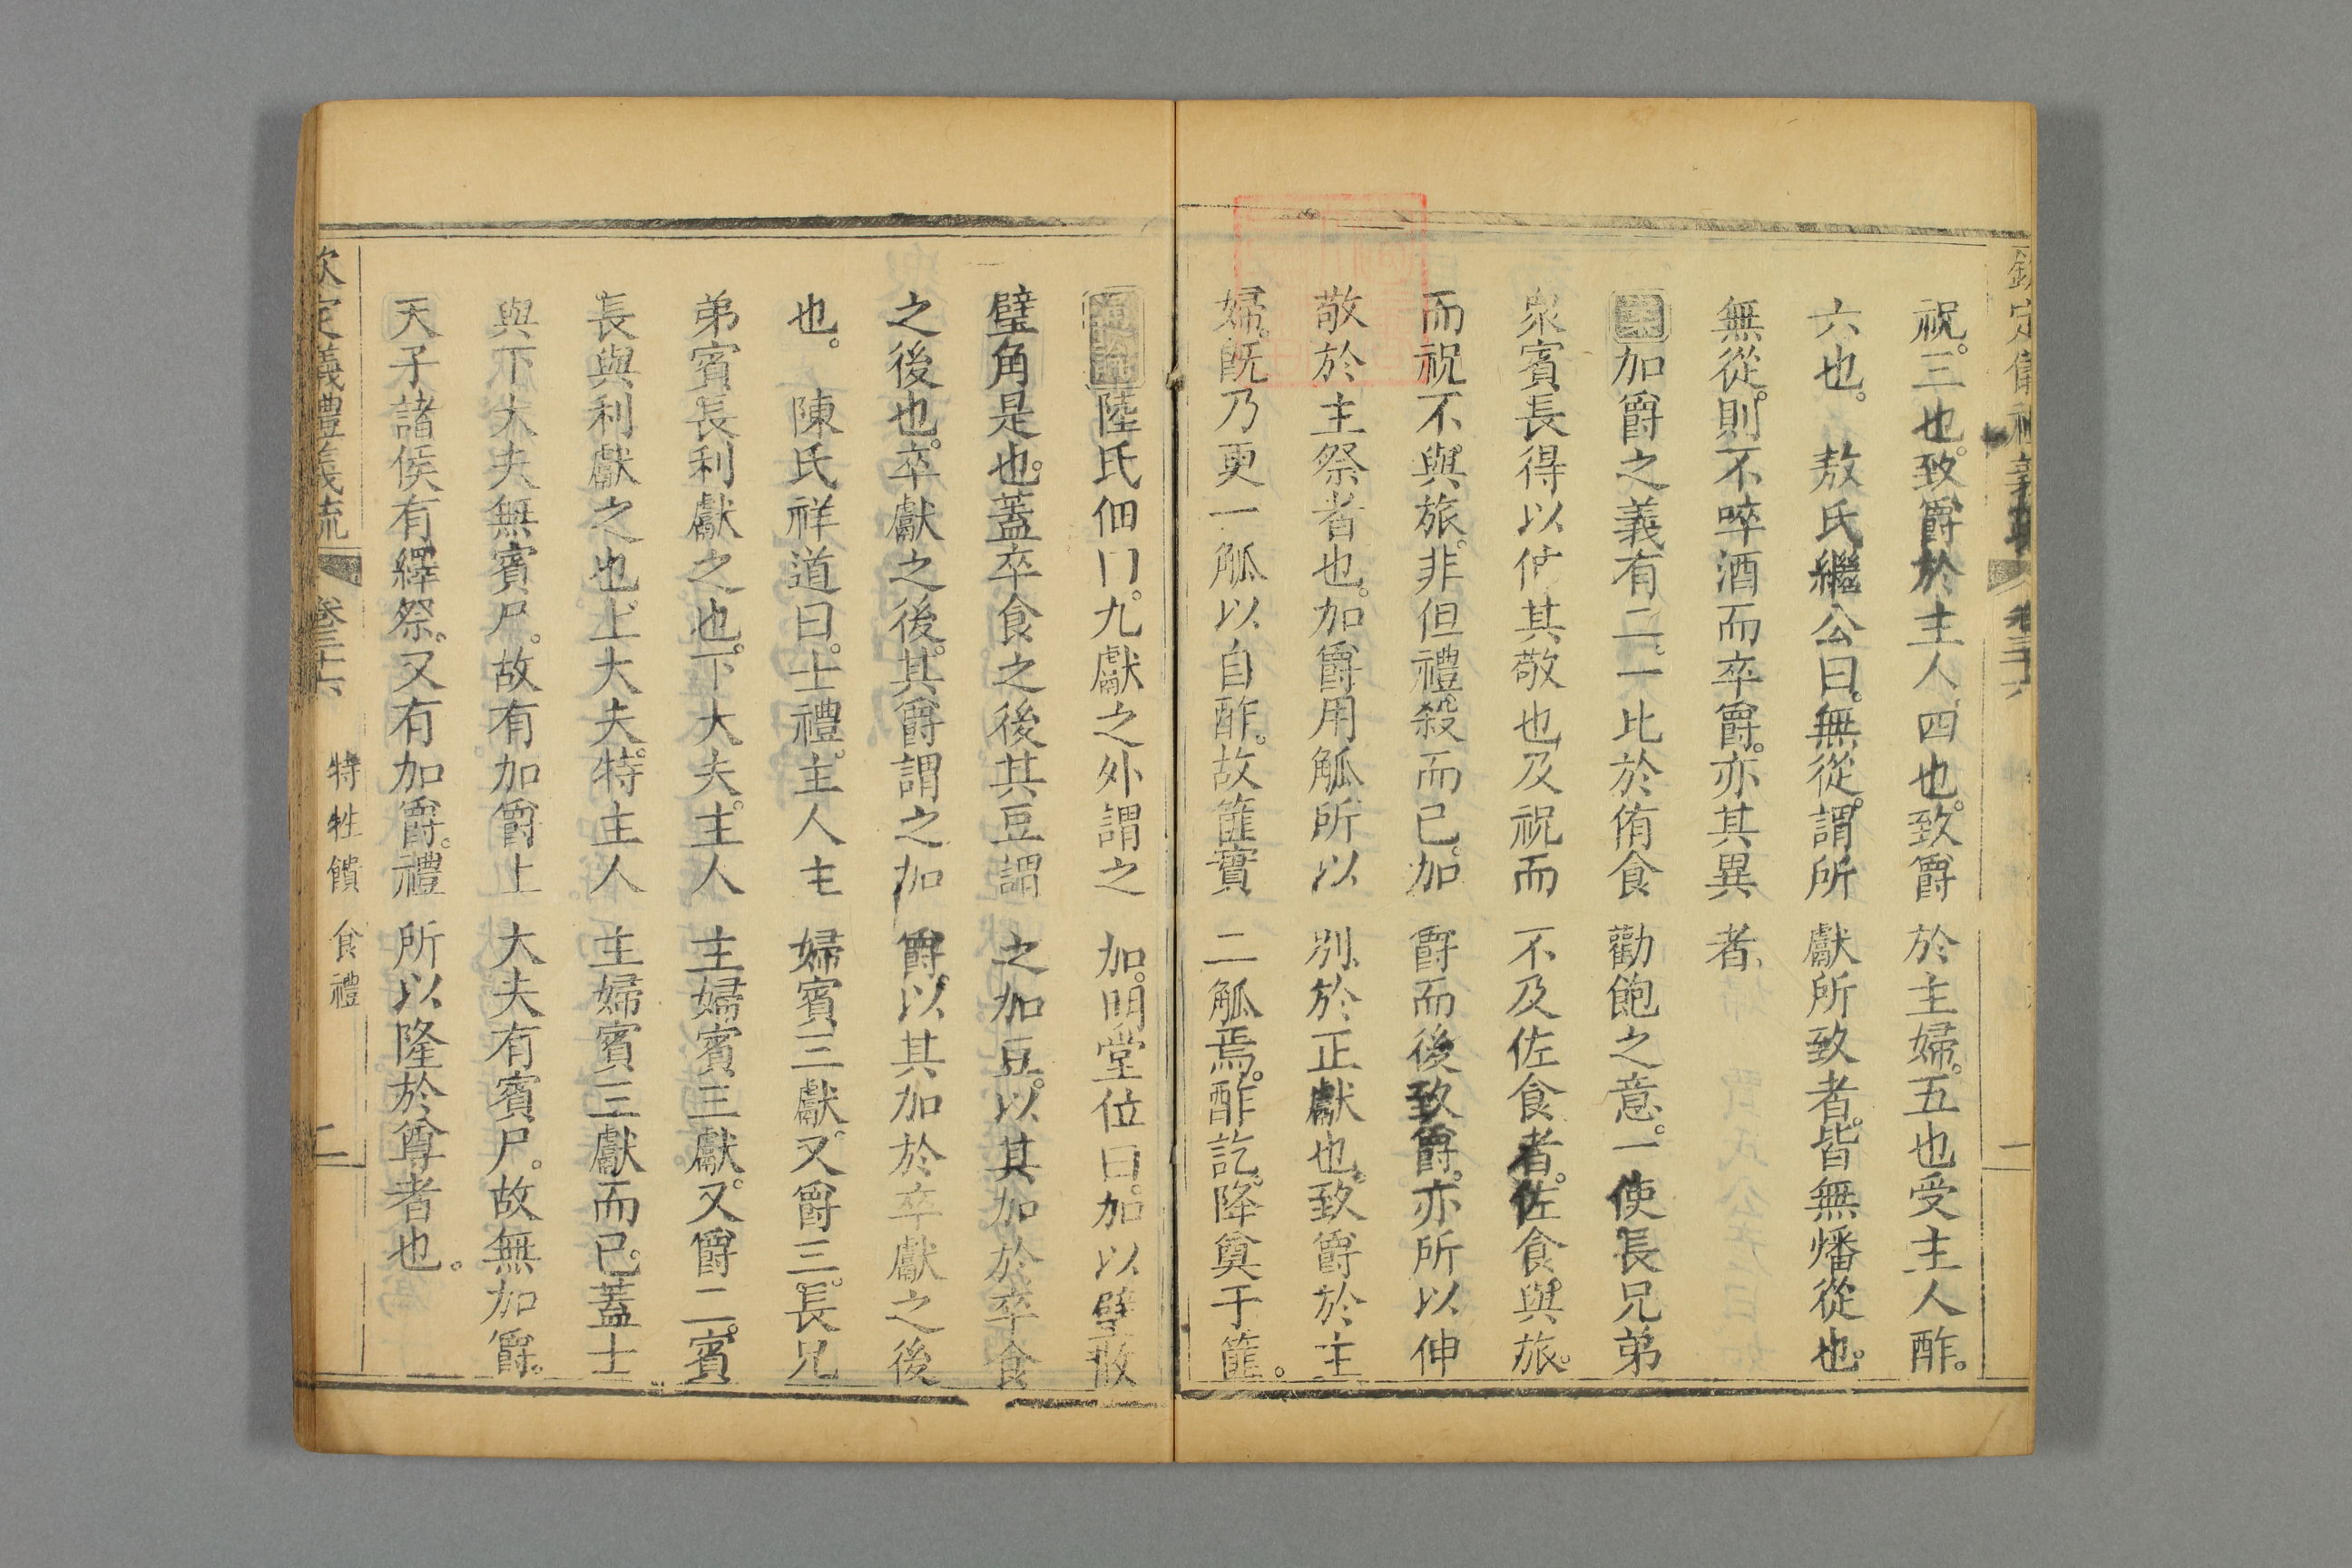 祝。三也。致爵於主人、四也。致爵於主婦。五也受主人酢。
六也。　敖氏繼公曰。無從。謂所獻所致者。皆無燔從也。
無從。則不啐酒而卒爵。亦其異者、
案加爵之義有二。一比於侑食勸飽之意。一使長兄弟
衆賓長得以伸其敬也及祝而不及佐食者。佐食與旅。
而祝不與旅。非但禮殺而已。加爵而後致爵。亦所以伸
敬於主祭者也。加爵用觚所以別於正獻也。致爵於主
婦。旣乃更一觚以自酢。故篚實二觚焉。酢訖。降奠于篚。
通論陸氏佃曰。九獻之外謂之加。明堂位曰。加以璧散
璧角是也。蓋卒食之後其豆謂之加豆。以其加於卒食
之後也。卒獻之後。其爵謂之加爵以其加於卒獻之後
也。　陳氏祥道曰。士禮。主人主婦賓三獻。又爵三。長兄
弟賓長利獻之也。下大夫。主人主婦賓三獻。又爵二。賓
長與利獻之也。上大夫。特主人主婦賓三獻而已。蓋士
與下大夫無賓尸。故有加爵上大夫有賓尸。故無加爵。
天子諸侯有繹祭。又有加爵。禮所以隆於尊者也。
欽定義禮義疏　卷三十六　特牲饋食禮　二